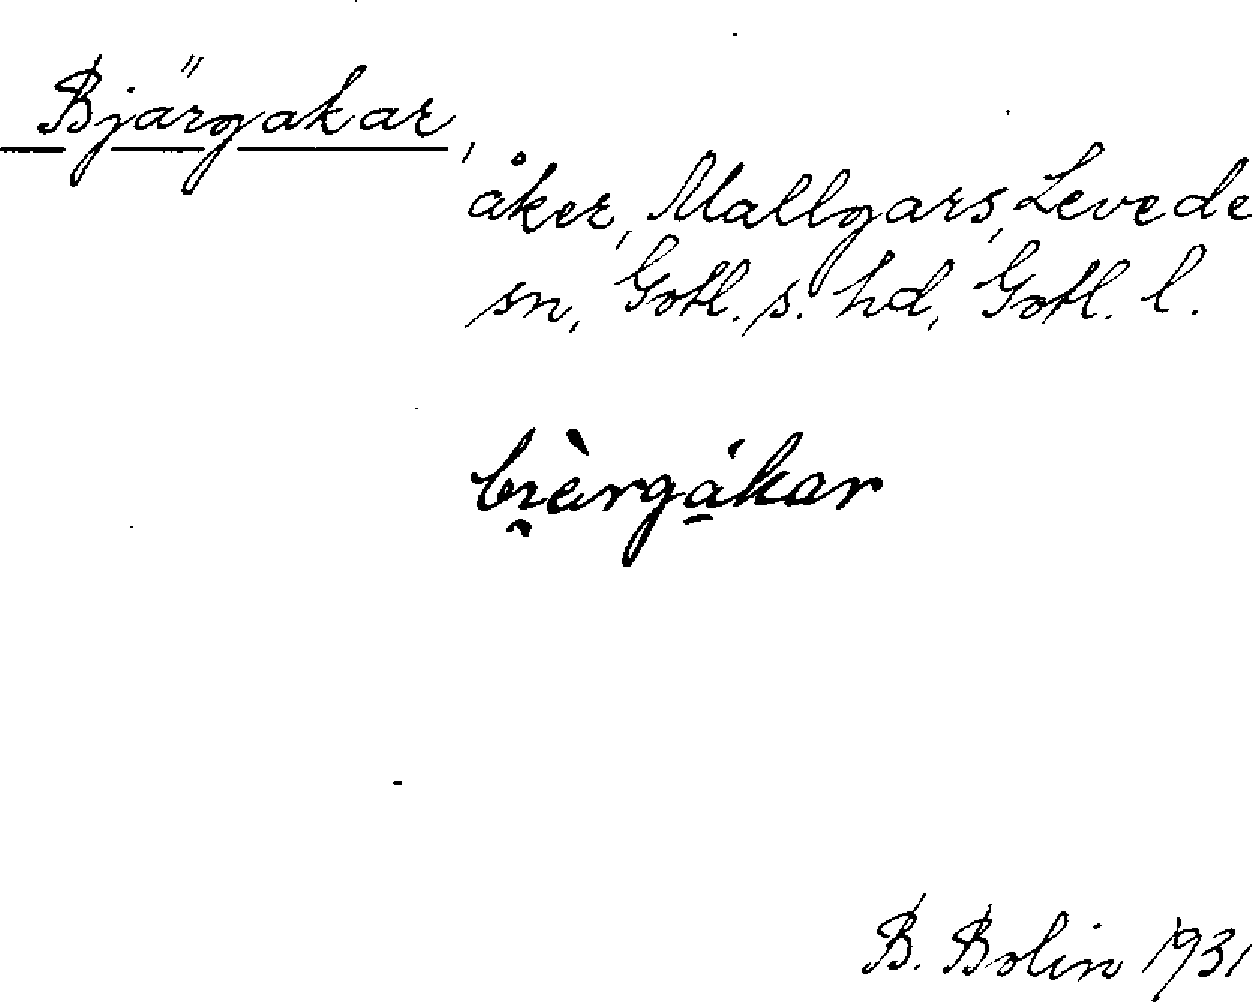 Bjärgakar,
åker, Mallgars, Levede
sn, Gotl. s. hd, Gotl. l.
B. Bolin 1931